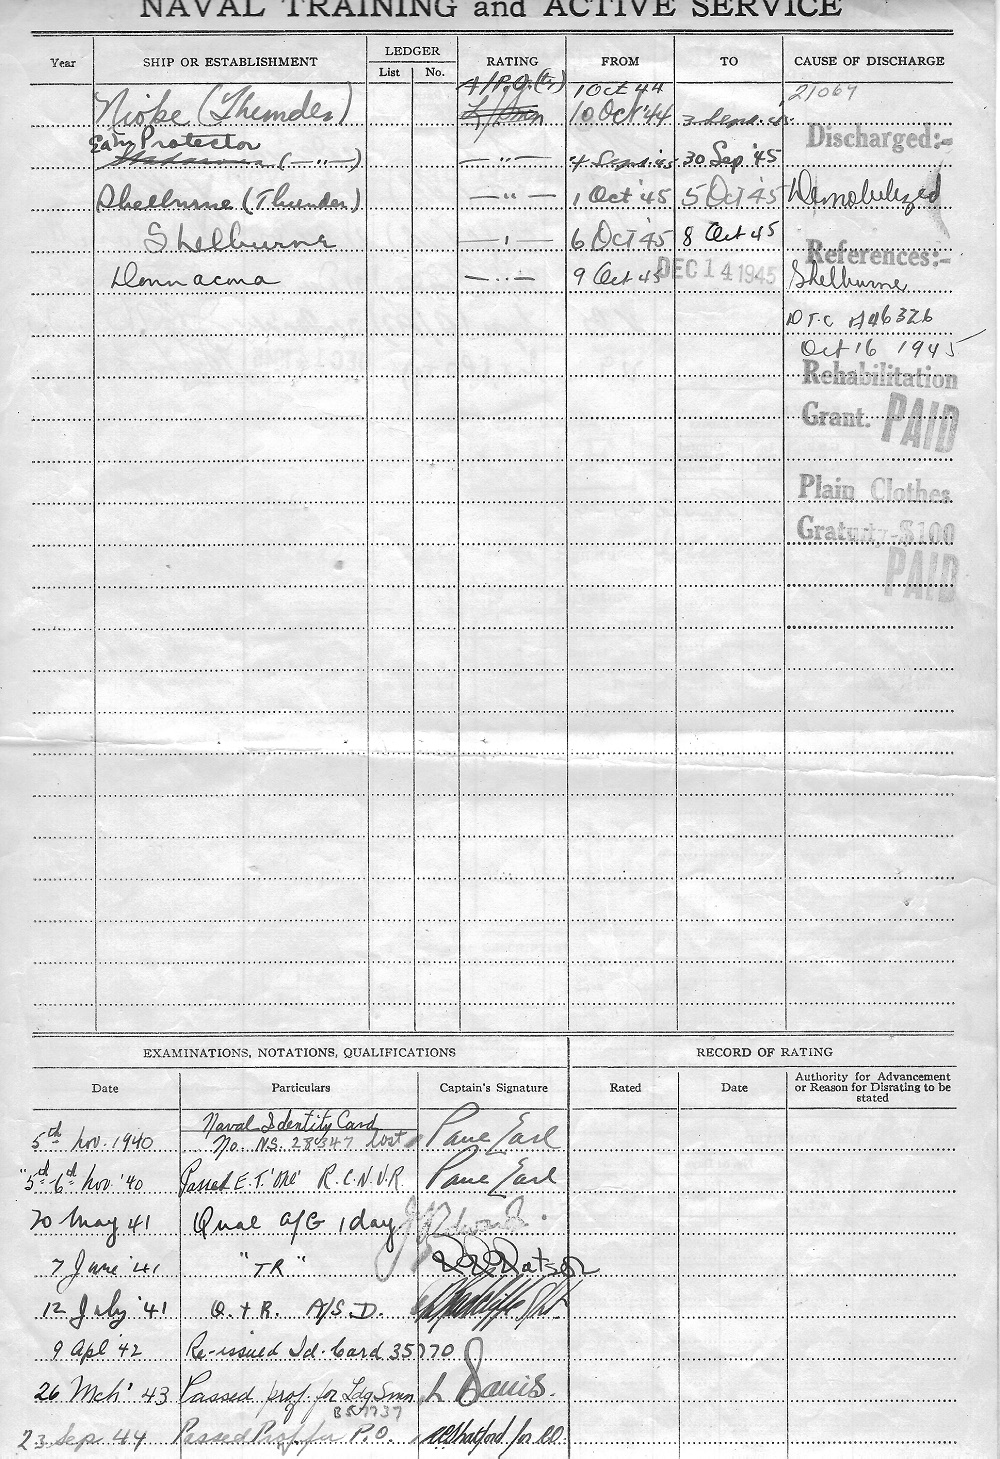 NAVAL TRAINING and ACTIVE SERVICE
Year SHIP OR ESTABLISHMENT LEDGER List No. RATING FROM TO CAUSE OF DISCHARGE
A/P.O.(t.) 1 Oct 44 21067
Niobe (Thunder) 10 Oct '44 3 Sept. 45.
Discharged:-
Protector
(— " —) — " — 4 Sept. '45 30 Sep '45
Shelburne (Thunder) — " — 1 Oct '45 5 Oct '45 Demobilized
Shelburne — " — 6 Oct '45 8 Oct 45
References:-
Donnacona — " — 9 Oct 45 DEC 14 1945 Shelburne
DTC A46326
Oct 16 1945
Rehabilitation
Grant. PAID
Plain Clothes
Gratuity-$100
PAID
EXAMINATIONS, NOTATIONS, QUALIFICATIONS RECORD OF RATING
Date Particulars Captain's Signature Rated Date Authority for Advancement or Reason for Disrating to be stated
Naval Identity Card
5th Nov. 1940 No. NS. 28347 lost Paul Earl
5th-6th Nov. '40 Passed E.T. R.C.N.V.R. Paul Earl
20 May 41 Qual A/G 1 day
7 June '41 "TR"
12 July '41 Q. + R. A/S.D.
9 Apl '42 Re-issued Id. Card 35770
26 Mch' 43 Passed prof. for Ldg Smn
23 Sep 44 Passed Prof. for P.O. for C.O.